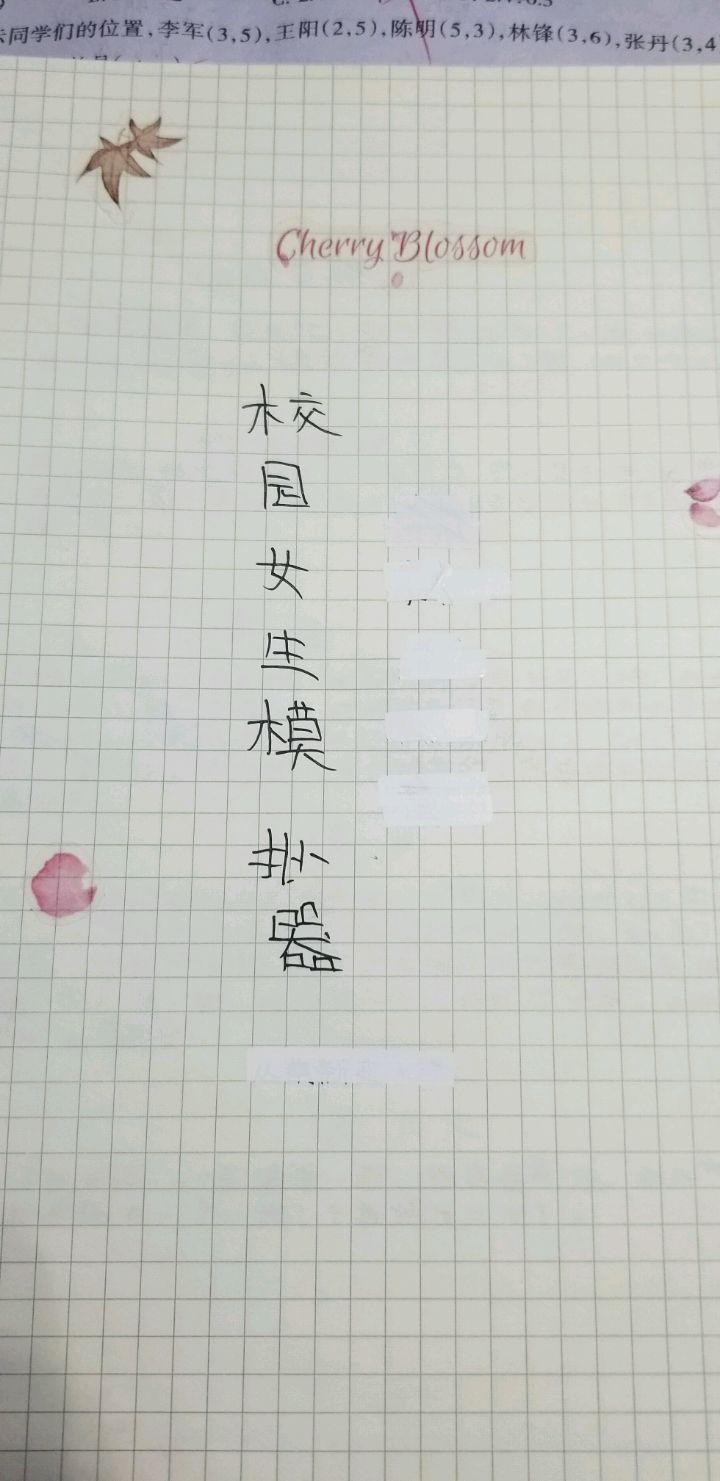 去同学们的位置,李军(3,5),王阳(2,5),陈明(5,3),林锋(3,6),张丹(3,4
Cherry Blossom
校
园
女
生
模
器